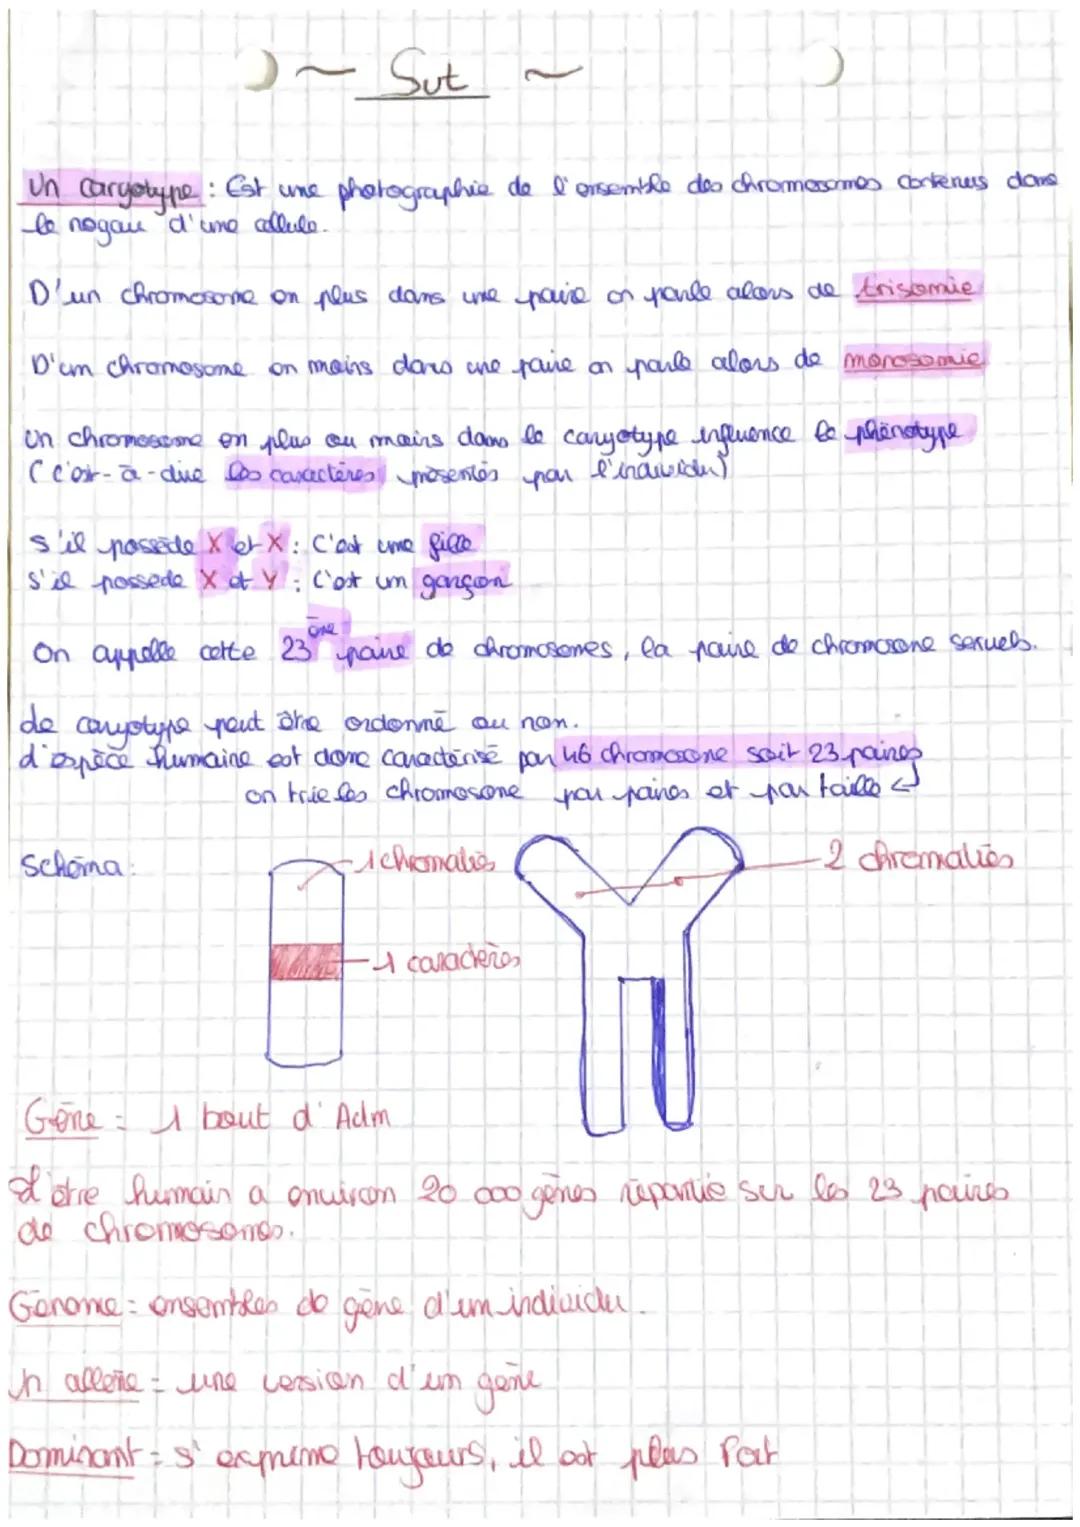 ~ Svt ~
Un caryotype : Est une photographie de l'ensemble des chromosomes contenus dans
le noyau d'une cellule.
D'un chromosome en plus dans une paire on parle alors de trisomie
D'un chromosome en moins dans une paire on parle alors de monosomie
Un chromosome en plus ou moins dans le caryotype influence le phénotype
(c'est-à-dire les caractères présentés par l'individu)
s'il possède X et X : C'est une fille
s'il possede X et Y : C'est un garçon
On appelle cette 23ème paire de chromosomes, la paire de chromosome sexuels.
Le caryotype peut être ordonné ou non.
L'espèce humaine est donc caractérisé par 46 chromosome soit 23 paires
on trie les chromosome par paires et par taille ↵
Schéma :
1 chromaties
2 chromaties
1 caractères
Gène = 1 bout d'Adm
L'être humain a environ 20 000 gènes répartie sur les 23 paires
de chromosomes.
Génome = ensembles de gène d'un individu.
Un allèle = une version d'un gène
Dominant = s'exprime toujours, il est plus Fort